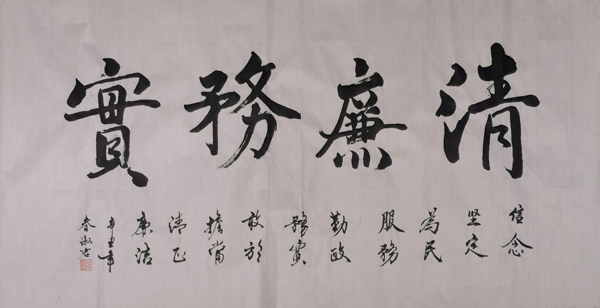 清廉務實
信念
坚定
為民
服務
勤政
務實
敢於
擔當
清正
廉洁
辛丑年
春淑古